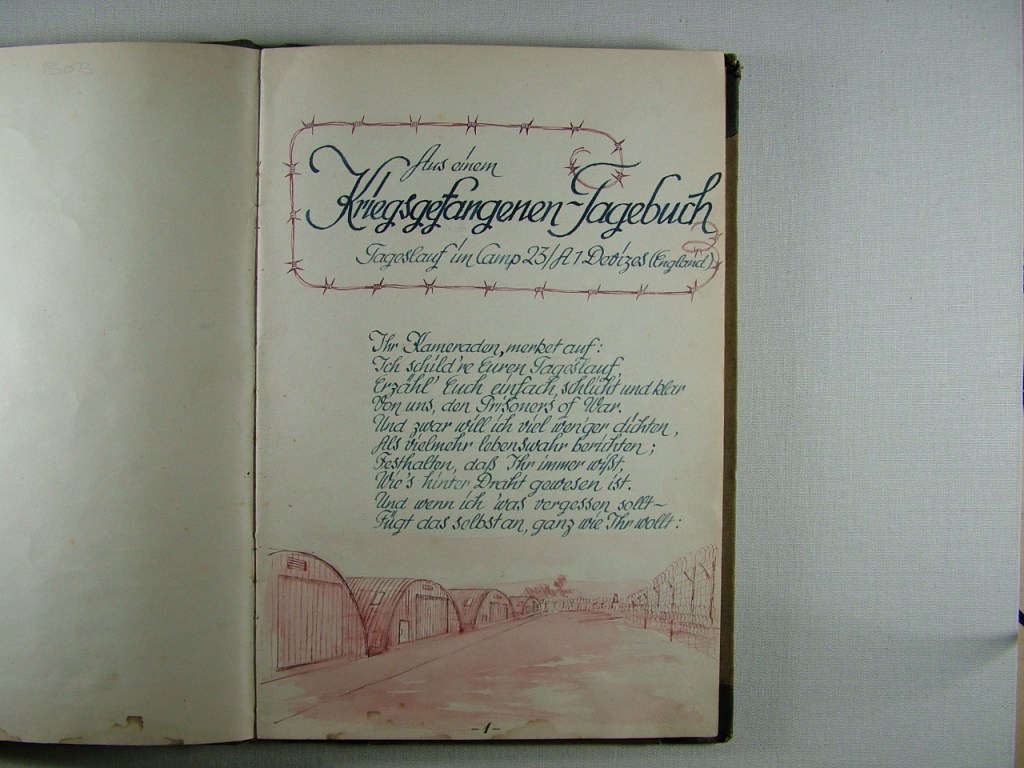 Aus einem
Kriegsgefangenen-Tagebuch
Tageslauf im Camp 23/A1 Devizes (England)
Ihr Kameraden, merket auf:
Ich schild're Euren Tageslauf,
Erzähl' Euch einfach, schlicht und klar
Von uns, den Prisoners of War.
Und zwar will ich viel wen'ger dichten,
Als vielmehr lebenswahr berichten;
Festhalten, daß Ihr immer wißt,
Wie's hinter Draht gewesen ist.
Und wenn ich 'was vergessen sollt~
Fügt das selbst an, ganz wie Ihr wollt:
-1-